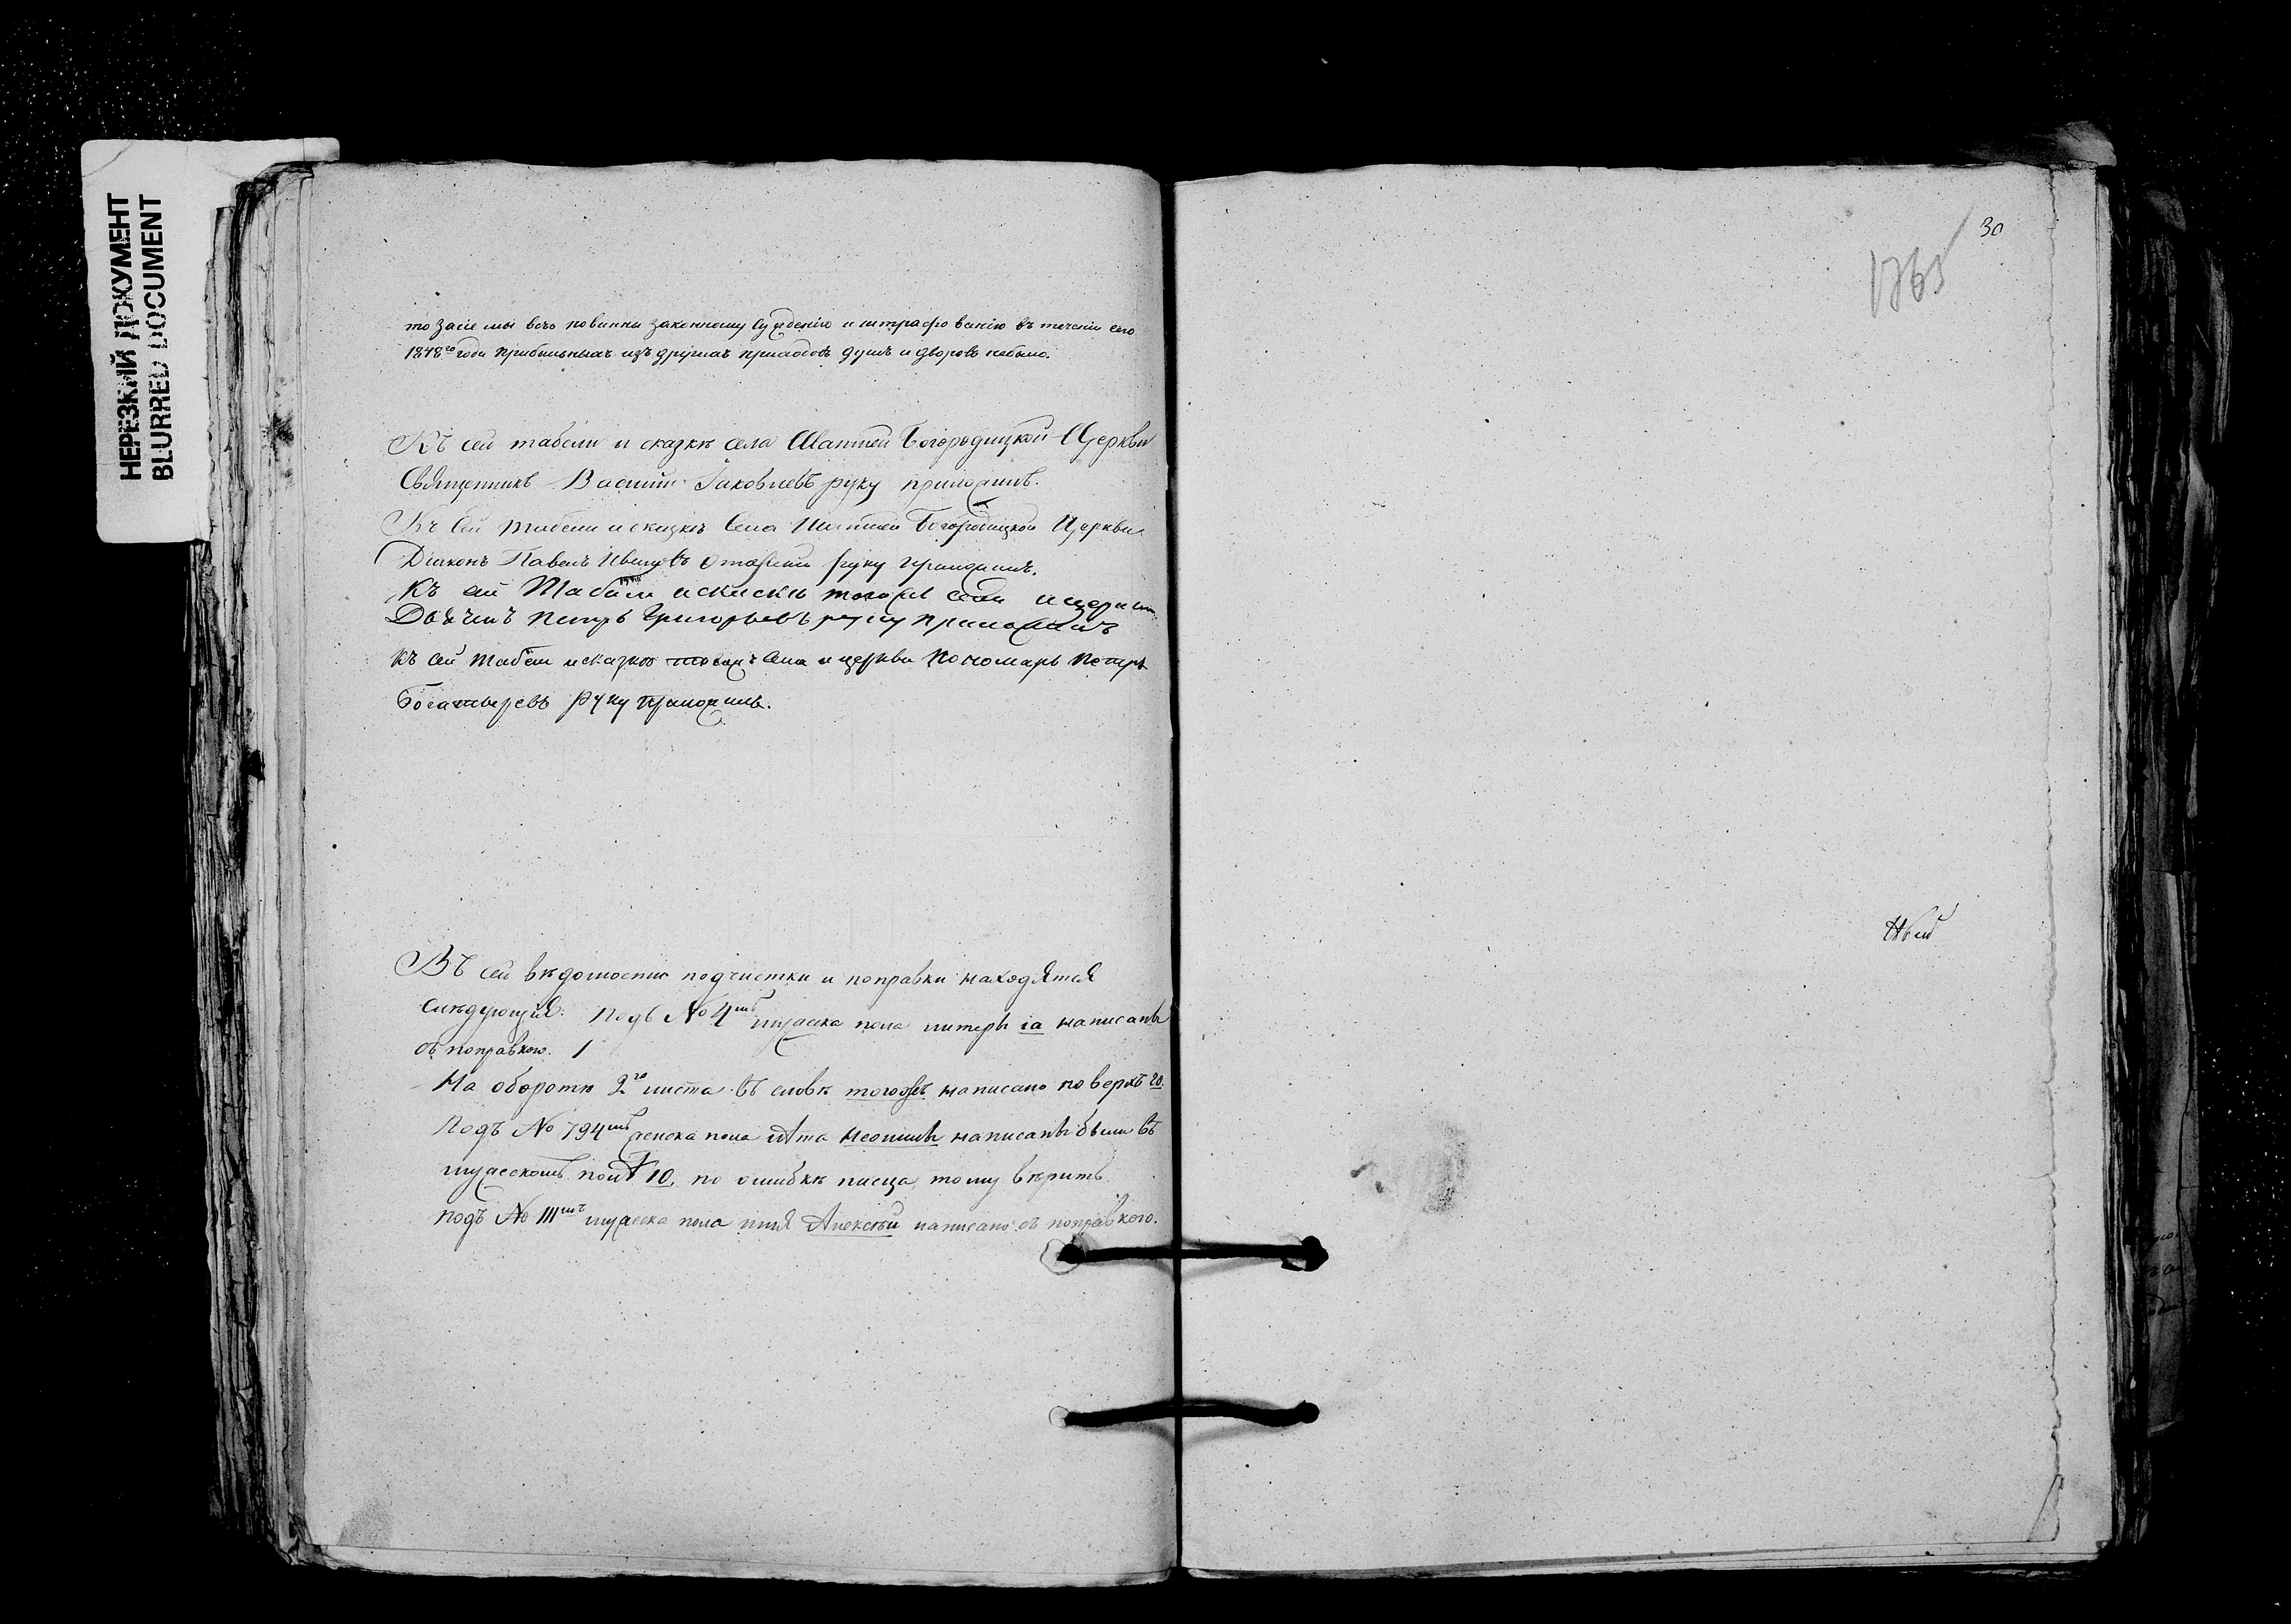 НЕРЕЗКИЙ ДОКУМЕНТ
BLURRED DOCUMENT
то засіе мы всѣ повинны законному сужденію и штрафованію въ теченіи сего
1818го года прибыльныхъ изъ другихъ приходовъ душъ и дворовъ небыло.
Къ сей табели и сказкѣ села Богородицкой Церкви
Священникъ Василій Іаковлевъ руку приложилъ.
Къ сей табели и сказкѣ села Богородицкой Церкви
Діаконъ Павелъ руку приложилъ.
Къ сей Табели искаски тогожъ села ицеркви
Дьячекъ Петръ Григорьевъ руку приложилъ
Къ сей табели исказкѣ тогожъ села и церкви Пономарь Петръ
Богатыревъ руку приложилъ.
Въ сей вѣдомости подчистки и поправки находятся
слѣдующія: Подъ № 4мъ мужеска пола литеры іа написаны
съ поправкою. 1
На оборотѣ 2го листа въ словѣ тогожъ написано поверхъ го.
Подъ № 794мъ женска пола лѣта написаны были въ
мужескомъ полѣ 10, по ошибкѣ писца, тому вѣрить.
подъ № 111мъ мужеска пола имя Алексѣй написано съ поправкою.
30
1765